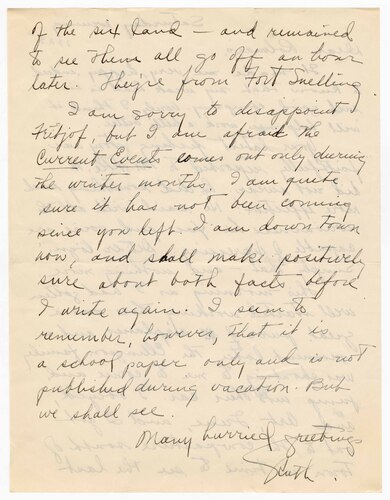 of the six land – and remained
to see them all go off an hour
later. They're from Fort Snelling.
I am sorry to disappoint
Fritjof, but I am afraid the
Current Events comes out only during
the winter months. I am quite
sure it has not been coming
since you left. I am down town
now, and shall make positively
sure about both facts before
I write again. I seem to
remember, however, that it is
a school paper only and is not
published during vacation. But
we shall see.
Many hurried greetings
Ruth.